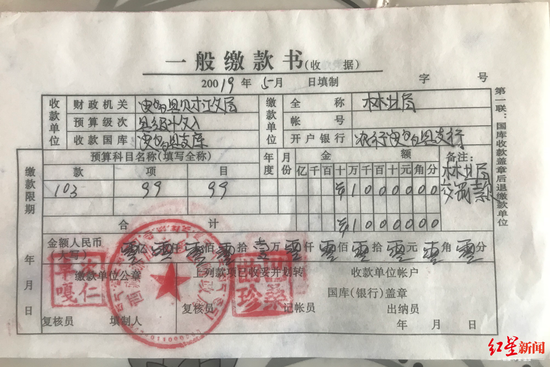 一般缴款书(收 据)
20019年5月 日填制 字 号
收款单位 财政机关 财政局 缴款单位 全称 林业局
预算级次 县级收入 帐号
收款国库 县支库 开户银行 农行 县支行
缴款限期 年 月 日
预算科目名称(填写全称) 年度 月份 金额 备注:
款 项 目 亿千百十万千百十元角分 林业局
103 99 99 ¥1000000 交罚款
合计 ¥1000000
金额人民币(大写) 零亿零仟零佰零拾壹万零仟零佰零拾零元零角零分
缴款单位公章 上列款项已收妥并划转 收款单位帐户
国库(银行)盖章
复核员 填制人 复核员 记帐员 出纳员
年 月 日
第一联:国库收款盖章后退缴款单位
红星新闻